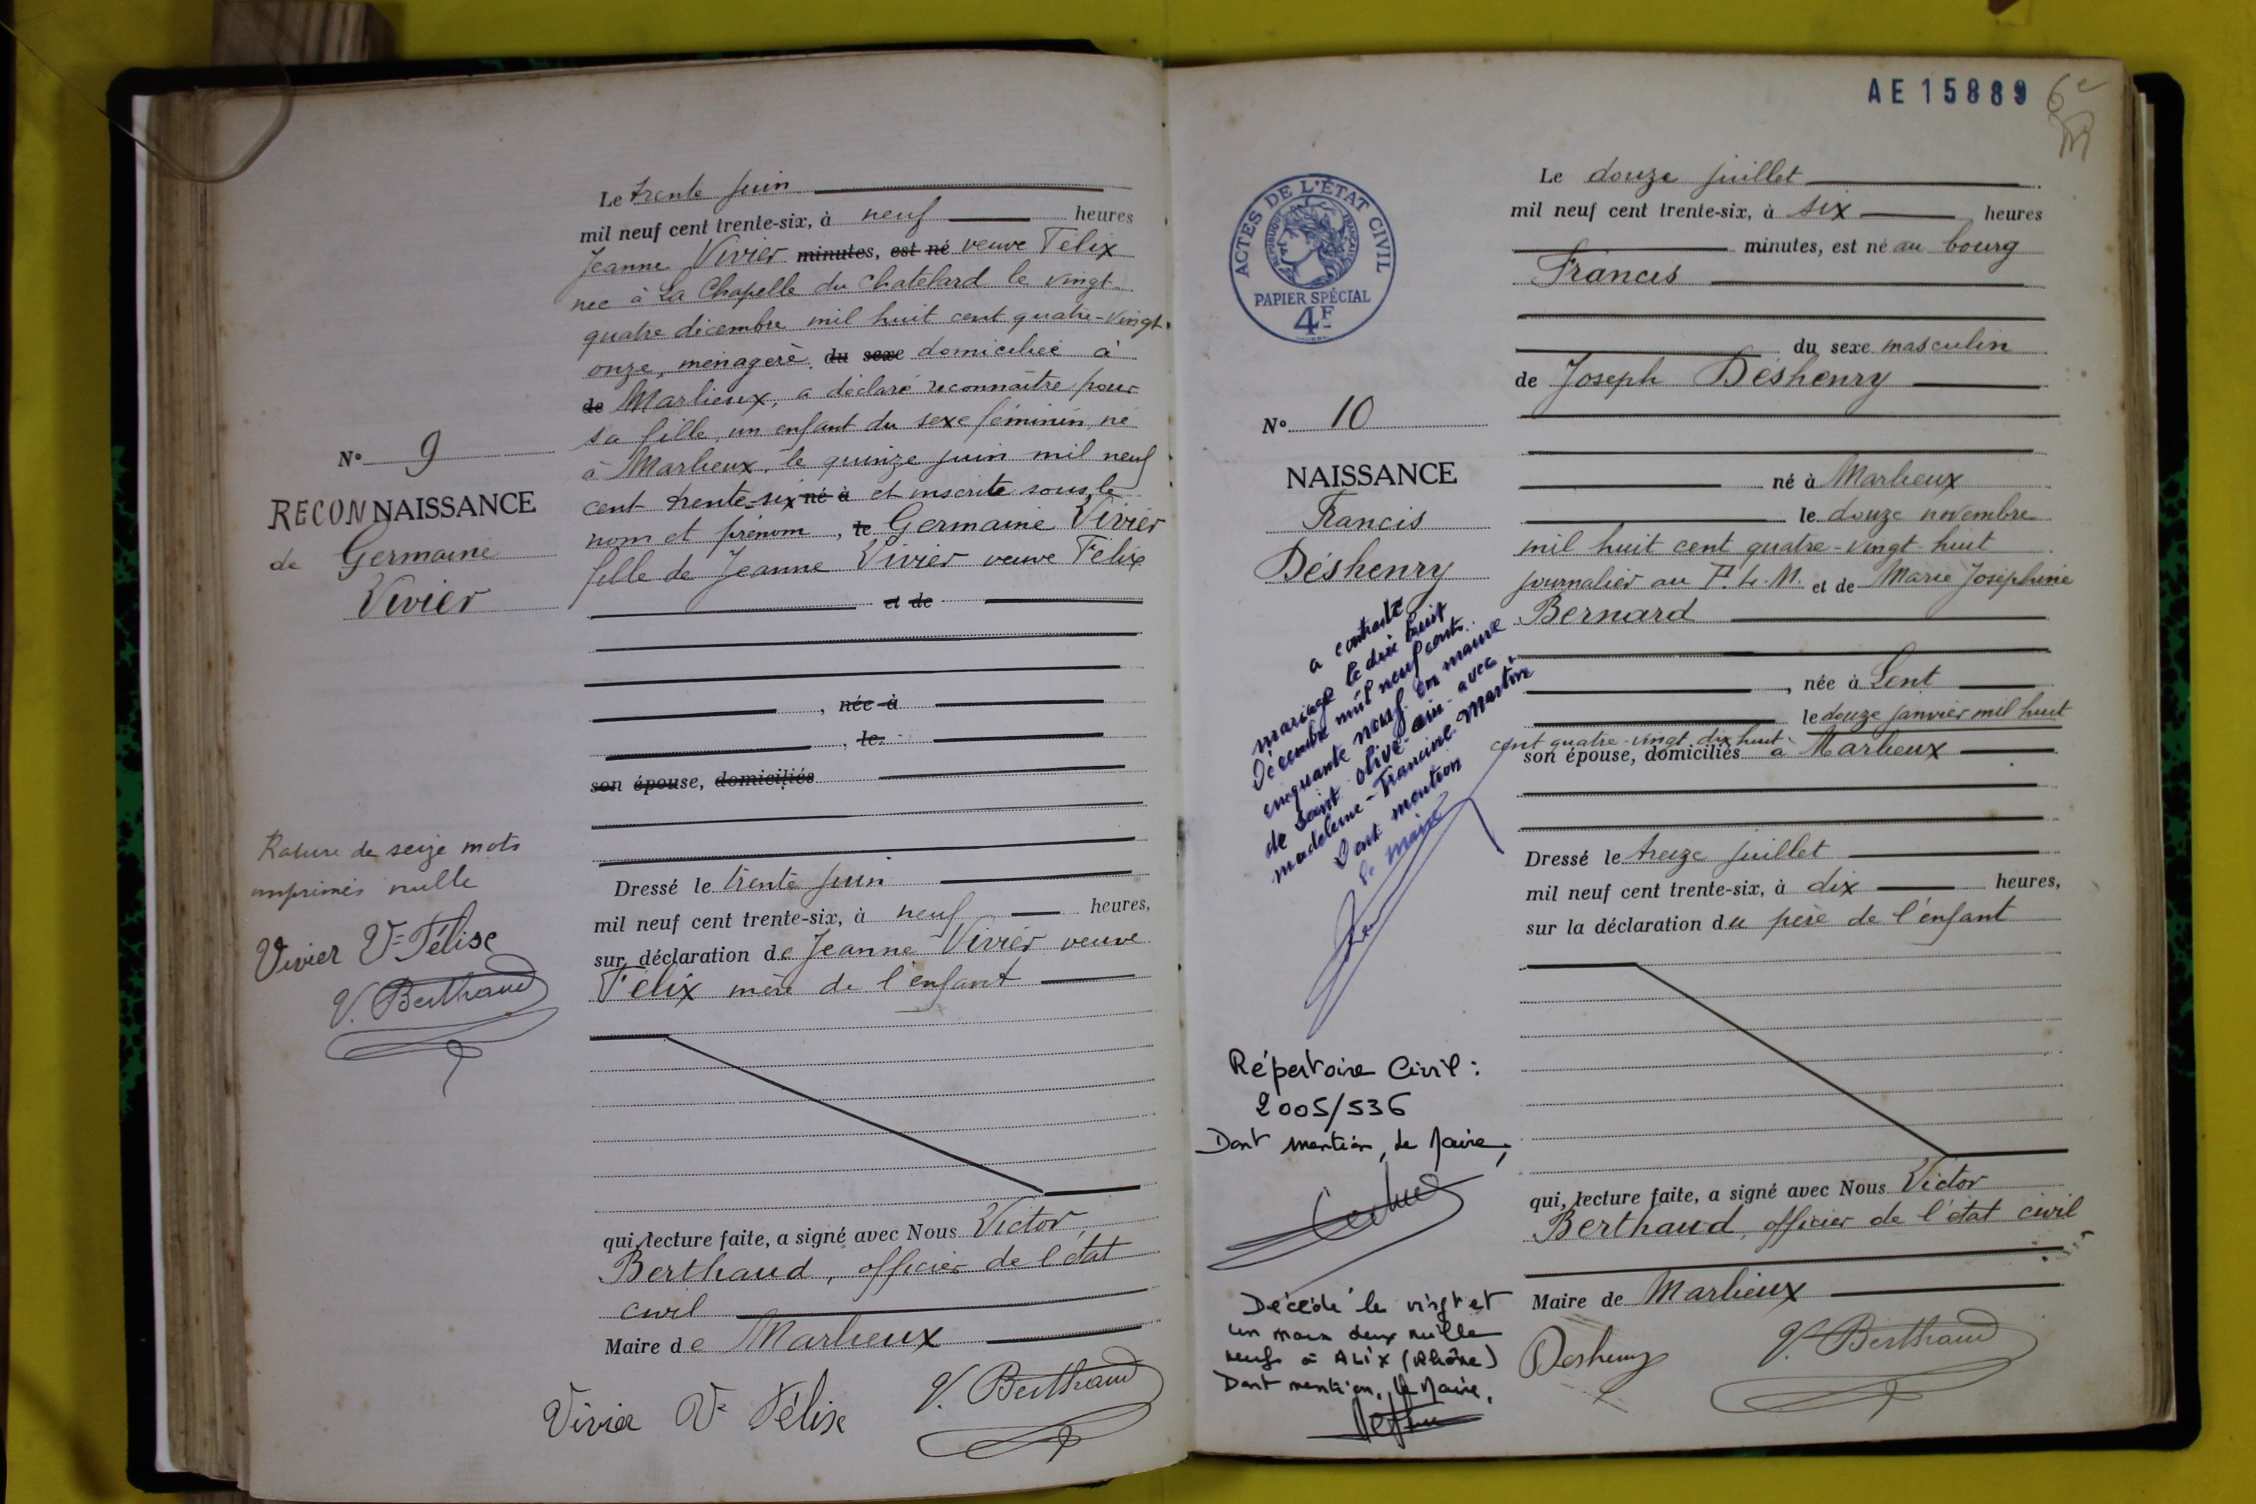 Le trente juin
mil neuf cent trente-six, à neuf heures
Jeanne Vivier minutes, est né veuve Félix
née à La Chapelle du Chatelard le vingt-
quatre décembre mil huit cent quatre-vingt-
onze, ménagère, du sexe domiciliée à
de Marlieux, a déclaré reconnaître pour
sa fille, un enfant du sexe féminin, né
à Marlieux, le quinze juin mil neuf
cent trente-six né à et inscrite sous le
nom et prénom, le Germaine Vivier
fille de Jeanne Vivier veuve Félix
et de
, née à
, le
son épouse, domiciliés
Dressé le trente juin
mil neuf cent trente-six, à neuf heures,
sur déclaration de Jeanne Vivier veuve
Félix mère de l'enfant
qui, lecture faite, a signé avec Nous Victor
Berthaud, officier de l'état
civil
Maire de Marlieux
Vivier Ve Félix
V. Berthaud
N° 9
RECONNAISSANCE
de Germaine
Vivier
Rature de seize mots
imprimés nulle
Vivier Ve Félix
V. Berthaud
AE 15889
6e
ACTES DE L'ÉTAT CIVIL
RÉPUBLIQUE FRANÇAISE
PAPIER SPÉCIAL
4F
Le douze juillet
mil neuf cent trente-six, à six heures
minutes, est né au bourg
Francis
du sexe masculin
de Joseph Déshenry
né à Marlieux
le douze novembre
mil huit cent quatre-vingt huit
journalier au P.L.M. et de Marie Joséphine
Bernard
, née à Lent
le douze janvier mil huit
cent quatre-vingt dix huit
son épouse, domiciliés à Marlieux
Dressé le treize juillet
mil neuf cent trente-six, à dix heures,
sur la déclaration du père de l'enfant
qui, lecture faite, a signé avec Nous Victor
Berthaud, officier de l'état civil
Maire de Marlieux
Deshenry
V. Berthaud
N° 10
NAISSANCE
Francis
Déshenry
a contracté
mariage le dix huit
Décembre mil neuf cent
cinquante neuf en mairie
de Saint Olive Ain avec
madeleine-Francine Martin
Dont mention
le maire
Répertoire Civil :
2005/536
Dont mention, le Maire,
Décédé le vingt et
un mars deux mille
neuf à ALIX (Rhône)
Dont mention, le Maire,